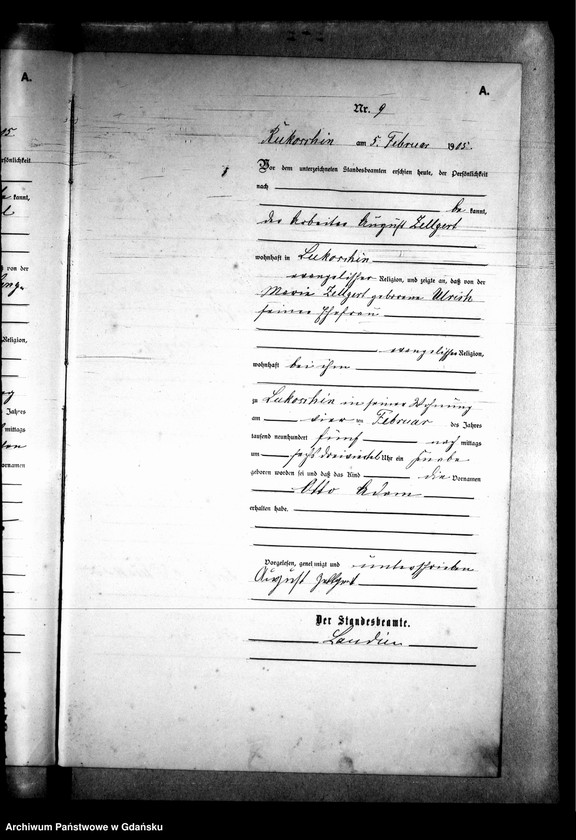 A.
A.
Nr. 9
am 5. Februar 1905.
Vor dem unterzeichneten Standesbeamten erschien heute, der Persönlichkeit
nach
be kannt,
der Arbeiter August Zellgert
wohnhaft in Lukorschin
evangelischer Religion, und zeigte an, daß von der
Marie Zellgert geborene Ulrich
seiner Ehefrau
evangelischer Religion,
wohnhaft bei ihm
zu Lukorschin in seiner Wohnung
am vier ten Februar des Jahres
tausend neunhundert fünf nach mittags
um sechs dreiviertel Uhr ein Knabe
geboren worden sei und daß das Kind die Vornamen
Otto Adam
erhalten habe.
Vorgelesen, genehmigt und unterschrieben
August Zellgert
Der Standesbeamte.
Landien
Archiwum Państwowe w Gdańsku